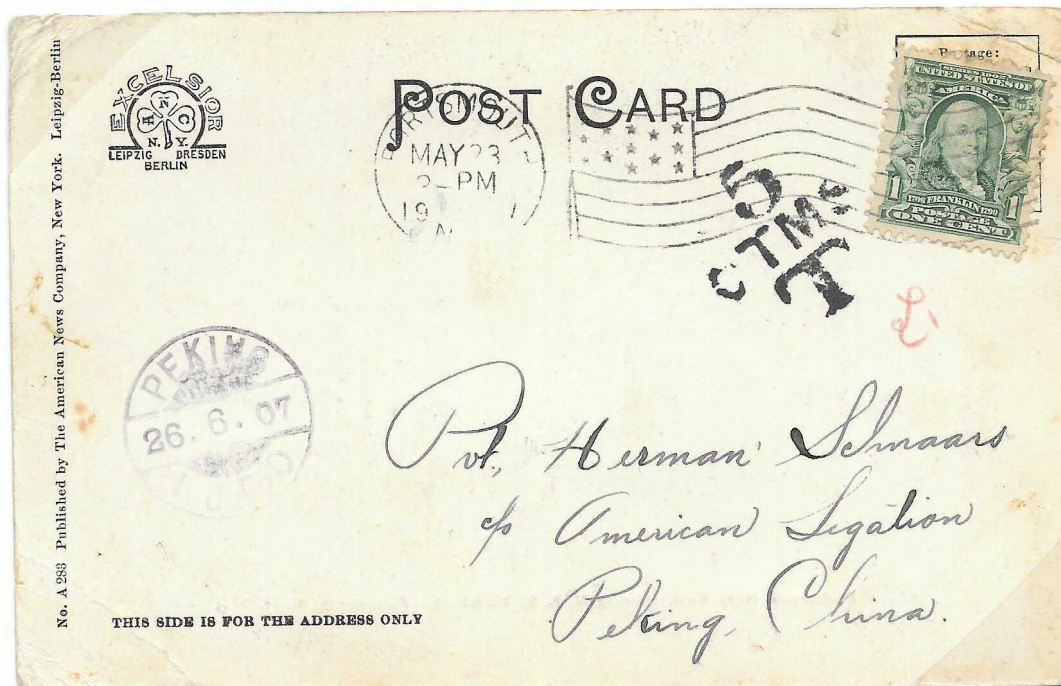 No. A 283 Published by The American News Company, New York. Leipzig-Berlin
EXCELSIOR
A N C
N. Y.
LEIPZIG DRESDEN
BERLIN
POST CARD
PORTSMOUTH
MAY 23
PM
19
Postage:
SERIES 1902
UNITED STATES OF
AMERICA
1706 FRANKLIN 1790
POSTAGE
1 ONE CENT 1
5
CTMS
T
PEKING
26.6.07
Pvt. Herman Schnaars
c/o American Legation
Peking, China.
THIS SIDE IS FOR THE ADDRESS ONLY